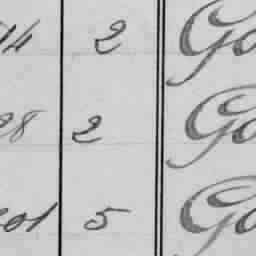 14 2 Go
28 2 Go
201 5 Go